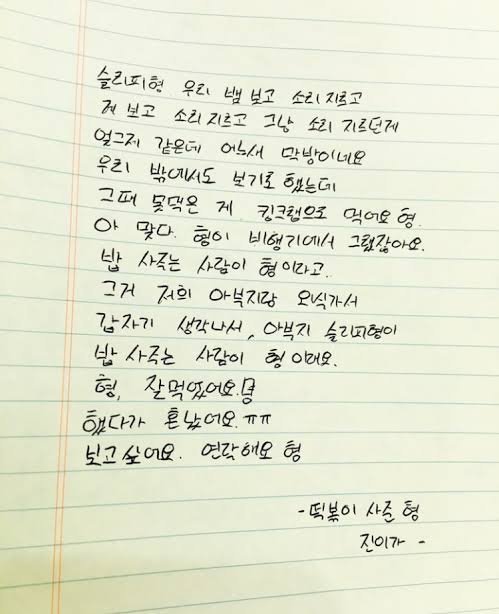 슬리피형 우리 뱀 보고 소리지르고
게 보고 소리지르고 그냥 소리 지르던게
엊그제 같은데 어느새 막방이네요
우리 밖에서도 보기로 했는데
그때 못먹은 게 킹크랩으로 먹어요 형.
아 맞다. 형이 비행기에서 그랬잖아요.
밥 사주는 사람이 형이라고.
그거 저희 아부지랑 외식가서
갑자기 생각나서, 아부지 슬리피형이
밥 사주는 사람이 형 이래요.
형, 잘먹었어요!
했다가 혼났어요.ㅠㅠ
보고싶어요. 연락해요 형
- 떡볶이 사준 형
진이가 -